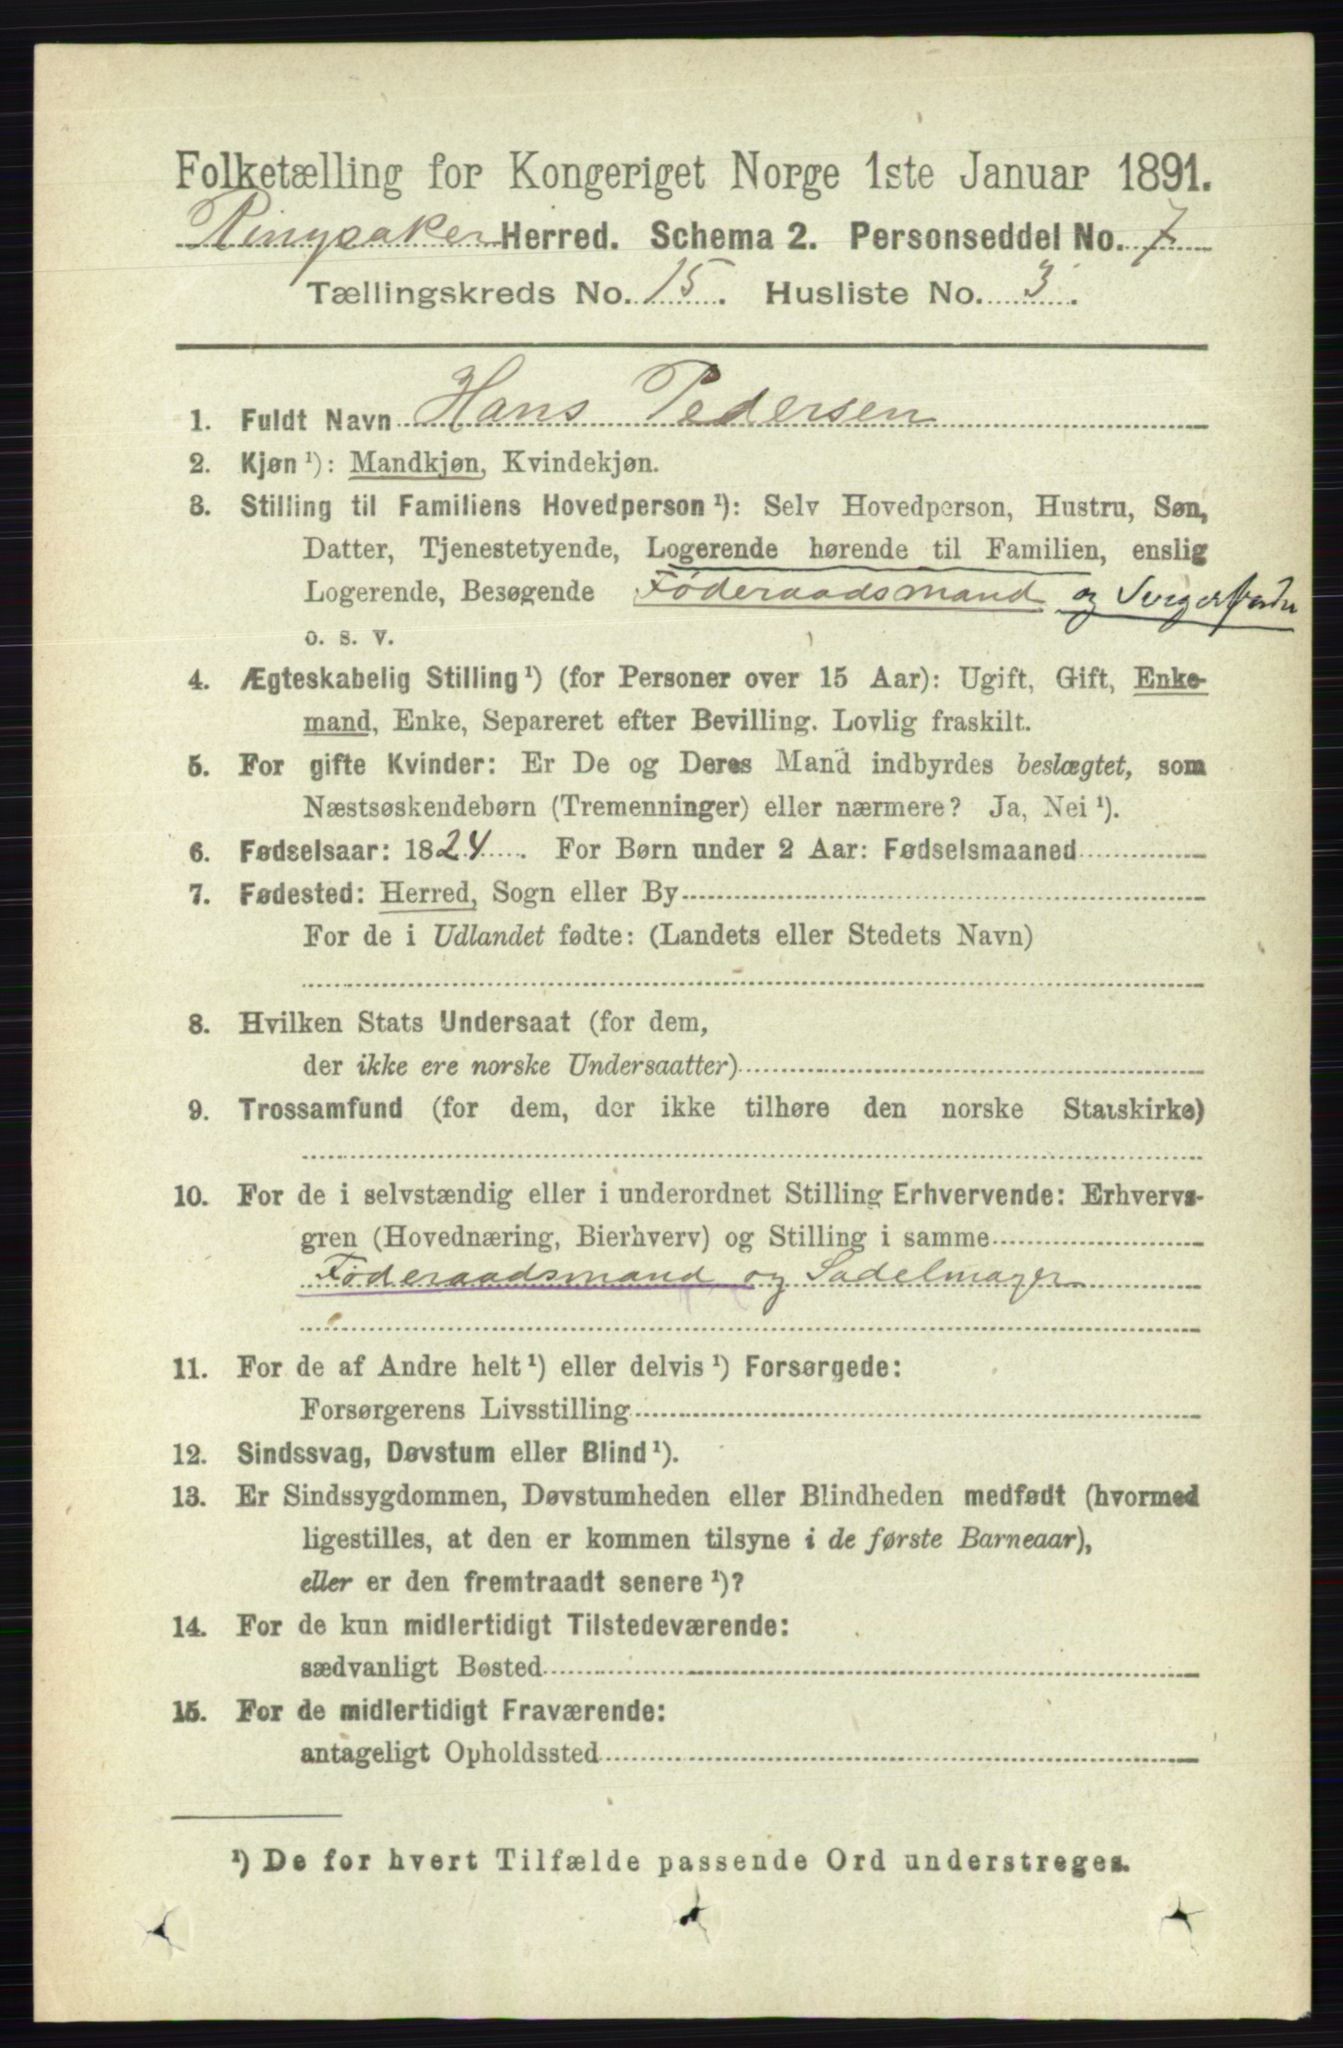 Folketælling for Kongeriget Norge 1ste Januar 1891.
Ringsaker Herred. Schema 2. Personseddel No. 7
Tællingskreds No. 15. Husliste No. 3.
1. Fuldt Navn Hans Pedersen
2. Kjøn ¹): Mandkjøn, Kvindekjøn.
3. Stilling til Familiens Hovedperson ¹): Selv Hovedperson, Hustru, Søn,
Datter, Tjenestetyende, Logerende hørende til Familien, enslig
Logerende, Besøgende Føderaadsmand og Svigerfader
o. s. v.
4. Ægteskabelig Stilling ¹) (for Personer over 15 Aar): Ugift, Gift, Enke-
mand, Enke, Separeret efter Bevilling. Lovlig fraskilt.
5. For gifte Kvinder: Er De og Deres Mand indbyrdes beslægtet, som
Næstsøskendebørn (Tremenninger) eller nærmere? Ja, Nei ¹).
6. Fødselsaar: 1824. For Børn under 2 Aar: Fødselsmaaned
7. Fødested: Herred, Sogn eller By
For de i Udlandet fødte: (Landets eller Stedets Navn)
8. Hvilken Stats Undersaat (for dem,
der ikke ere norske Undersaatter)
9. Trossamfund (for dem, der ikke tilhøre den norske Statskirke)
10. For de i selvstændig eller i underordnet Stilling Erhvervende: Erhvervs-
gren (Hovednæring, Bierhverv) og Stilling i samme
Føderaadsmand og Sadelmager
11. For de af Andre helt ¹) eller delvis ¹) Forsørgede:
Forsørgerens Livsstilling
12. Sindssvag, Døvstum eller Blind ¹).
13. Er Sindssygdommen, Døvstumheden eller Blindheden medfødt (hvormed
ligestilles, at den er kommen tilsyne i de første Barneaar),
eller er den fremtraadt senere ¹)?
14. For de kun midlertidigt Tilstedeværende:
sædvanligt Bosted
15. For de midlertidigt Fraværende:
antageligt Opholdssted
¹) De for hvert Tilfælde passende Ord understreges.